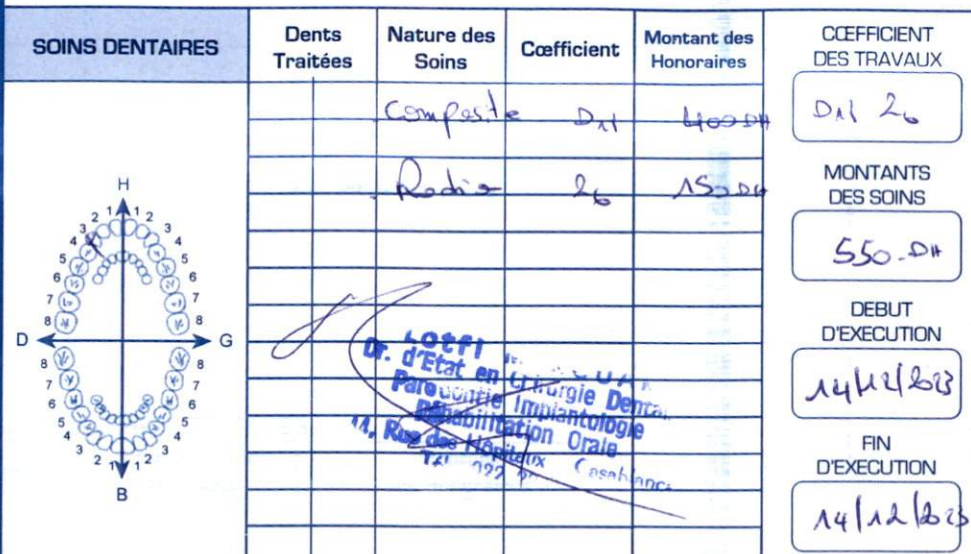 SOINS DENTAIRES
Dents Traitées
Nature des Soins
Cœfficient
Montant des Honoraires
Composite D11 400 DH
Radio 26 150 DH
H
2 1 1 2
3 3
4 4
5 5
6 6
7 7
8 8
D G
8 8
7 7
6 6
5 5
4 4
3 3
2 1 1 2
B
Lotfi
Dr. d'Etat en Chirurgie Denta
Parodontie Implantologie
Réhabilitation Orale
11, Rue des Hôpitaux Casablanc
Tél 022
CŒFFICIENT
DES TRAVAUX
D11 26
MONTANTS
DES SOINS
550 - DH
DEBUT
D'EXECUTION
14/12/2023
FIN
D'EXECUTION
14/12/2023